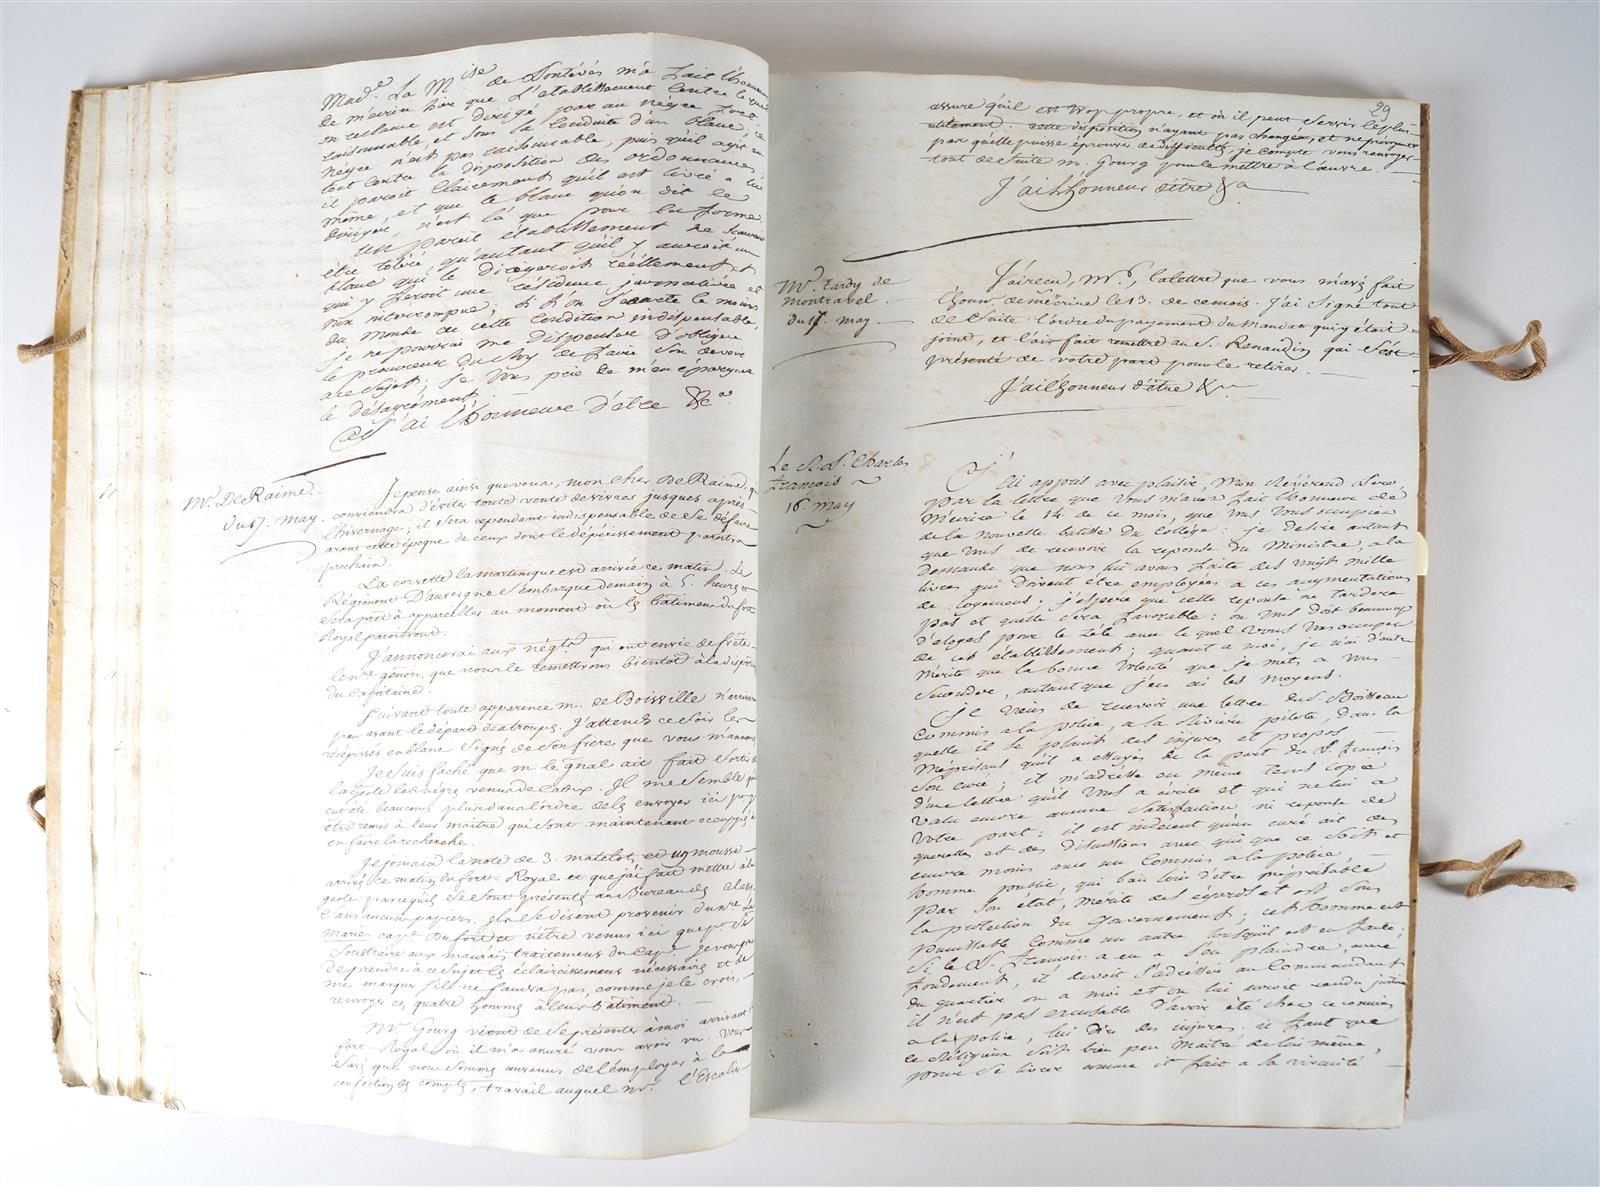 Made. La Mise de Pontévès m'a fait l'honneur
de m'écrire hier que l'établissement contre lequel
on réclame est dirigé par un nègre fort
raisonnable, et sous la conduite d'un blanc; ce
nègre n'est pas raisonnable, puis qu'il agit en
tout contre la disposition des ordonnances,
il paroit clairement qu'il est livré a lui
même, et que le blanc qu'on dit le
diriger, n'est là que pour la forme.
un pareil établissement ne scauroit
être toléré qu'autant qu'il y auroit un
blanc qui le dirigeroit réellement et
qui y feroit une résidence journalière et
non interrompue; si l'on s'écarte le moins
du monde de cette condition indispensable,
je ne pourrai me dispenser d'obliger
le procureur du Roy de faire son devoir
a ce sujet; je vous prie de m'en epargner
le désagrément.
J'ai l'honneur d'être &ca.
Mr. De Raime.
du 17. may.
Je pense ainsi que vous, mon cher De Raime, qu'il
conviendra d'éviter toute vente de vivres jusques après
l'hivernage; il sera cependant indispensable de se défaire
avant cette époque de ceux dont le dépérissement paroitra
prochain.
La corvette la martinique est arrivée ce matin. Le
Régiment D'auvergne s'embarque demain à 5. heures et
sera prêt à appareiller au moment où les bâtimens du fort
Royal paroitront.
J'annoncerai aux négts. qui ont envie de fréter
le nre genois, que nous le remettrons bientôt à la disposition
du Capitaine.
Suivant toute apparence m. de Boisville n'arrivera
pas avant le départ des troupes. J'attends ce soir les
récépissés en blanc signés de son frère que vous m'annoncez
Je suis faché que m. le gnal ait fait sortir de
la geole les nègres venus de Cadix. Il me semble qu'il
eut été beaucoup plus dans l'ordre de les envoyer ici pour
être remis à leur maitre qui sont maintenant occuppés à
en faire la recherche.
Je joins ici la note de 3. matelots et un mousse
arrivés ce matin du fort Royal et que j'ai fait mettre à la
geole parce qu'ils se sont présentés au Bureau des classes
sans aucun papiers. Ils se disent provenir du nre. La
Marie cape. Dufort et n'être venus ici que pour se
soustraire aux mauvais traitemens du Cape. Je vous prie
de prendre à ce sujet les éclaircissemens nécessaires et de
me marquer s'il ne faudra pas, comme je le crois,
renvoyer ces quatre hommes à leur bâtiment.
Mr Gourg vient de se présenter à moi arrivant du
fort-Royal où il m'a assuré vous avoir vu. Vous
savez que nous sommes convenus de l'employer à la
confection des comptes, travail auquel mr. l'Escalier
29
assure qu'il est trop propre, et où il peut servir le plus
utilement. cette disposition n'ayant pas changée, et ne prévoyant
pas qu'elle puisse éprouver de difficultés, je compte vous renvoyer
tout de suite m. Gourg pour le mettre à l'œuvre.
J'ai l'honneur d'être &a.
Mr. Tardy de
Montravel.
du 17. may
J'ai recu, Mr, la lettre que vous m'avés fait
l'honr. de m'écrire le 13. de ce mois. J'ai signé tout
de suite l'ordre du payement du mandat qui y étoit
joint, et l'ai fait remettre au S. Renaudin qui s'est
présenté de votre part pour le retirer.
J'ai l'honneur d'être &a.
Le R. P. Charles
françois
16. may
J'ai appris avec plaisir, Mon Révérend Père,
par la lettre que vous m'avez fait l'honneur de
m'écrire le 14 de ce mois, que vous vous occupiez
de la nouvelle batisse du Collège: je desire autant
que vous de recevoir la réponse du Ministre, a la
demande que nous lui avons faite des vingt mille
livres qui doivent être employées a ces augmentations
de logemens; j'espère que cette réponse ne tardera
pas et qu'elle sera favorable: on vous doit beaucoup
d'éloges pour le zèle avec le quel vous vous occupez
de cet établissement; quant a moi, je n'ai d'autre
mérite que la bonne volonté que je mets a vous
seconder, autant que j'en ai les moyens.
Je viens de recevoir une lettre du S. Boisseau
Commis a la police, a la Rivière pilote, dans la
quelle il se plaint des injures et propos
méprisans qu'il a essuyés de la part du P. françois
son curé; il m'adresse en même tems copie
d'une lettre qu'il vous a écrite et qui ne lui a
valu encore aucune satisfaction ni reponse de
votre part: il est indécent qu'un curé ait des
querelles et des discussions avec qui que ce soit et
encore moins avec un Commis a la police
homme public, qui bien loin d'être méprisable
par son état, mérite des égards et est sous
la protection du Gouvernement; cet homme est
punissable comme un autre lorsqu'il est en faute;
si le P. françois a eu a s'en plaindre, avec
fondement, il devoit s'adresser au Commandant
du quartier ou a moi et on lui auroit rendu justice
il n'est pas excusable d'avoir été chez ce commis
a la police, lui dire des injures. il faut que
ce Religieux soit bien peu maitre de lui même,
pour se livrer comme il fait a la vivacité